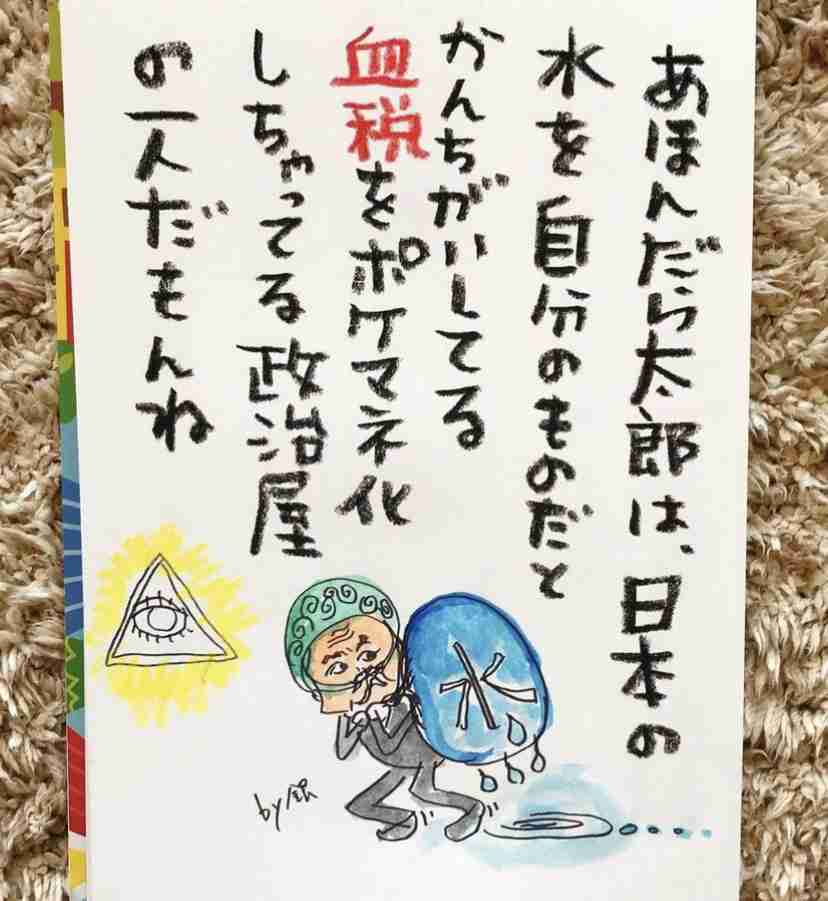 あほんだら太郎は、日本の
水を自分のものだと
かんちがいしてる
血税をポケマネ化
しちゃってる政治屋
の一人だもんね
水
by